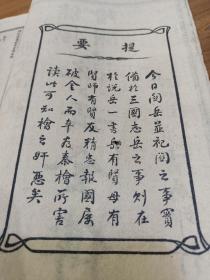 提要
今日關岳並祀關之事實
備於三國志岳之事則在
於説岳一書岳有賢母有
賢師有賢友精忠報國屡
破金人而卒為秦檜所害
读此可知檜之奸惡矣